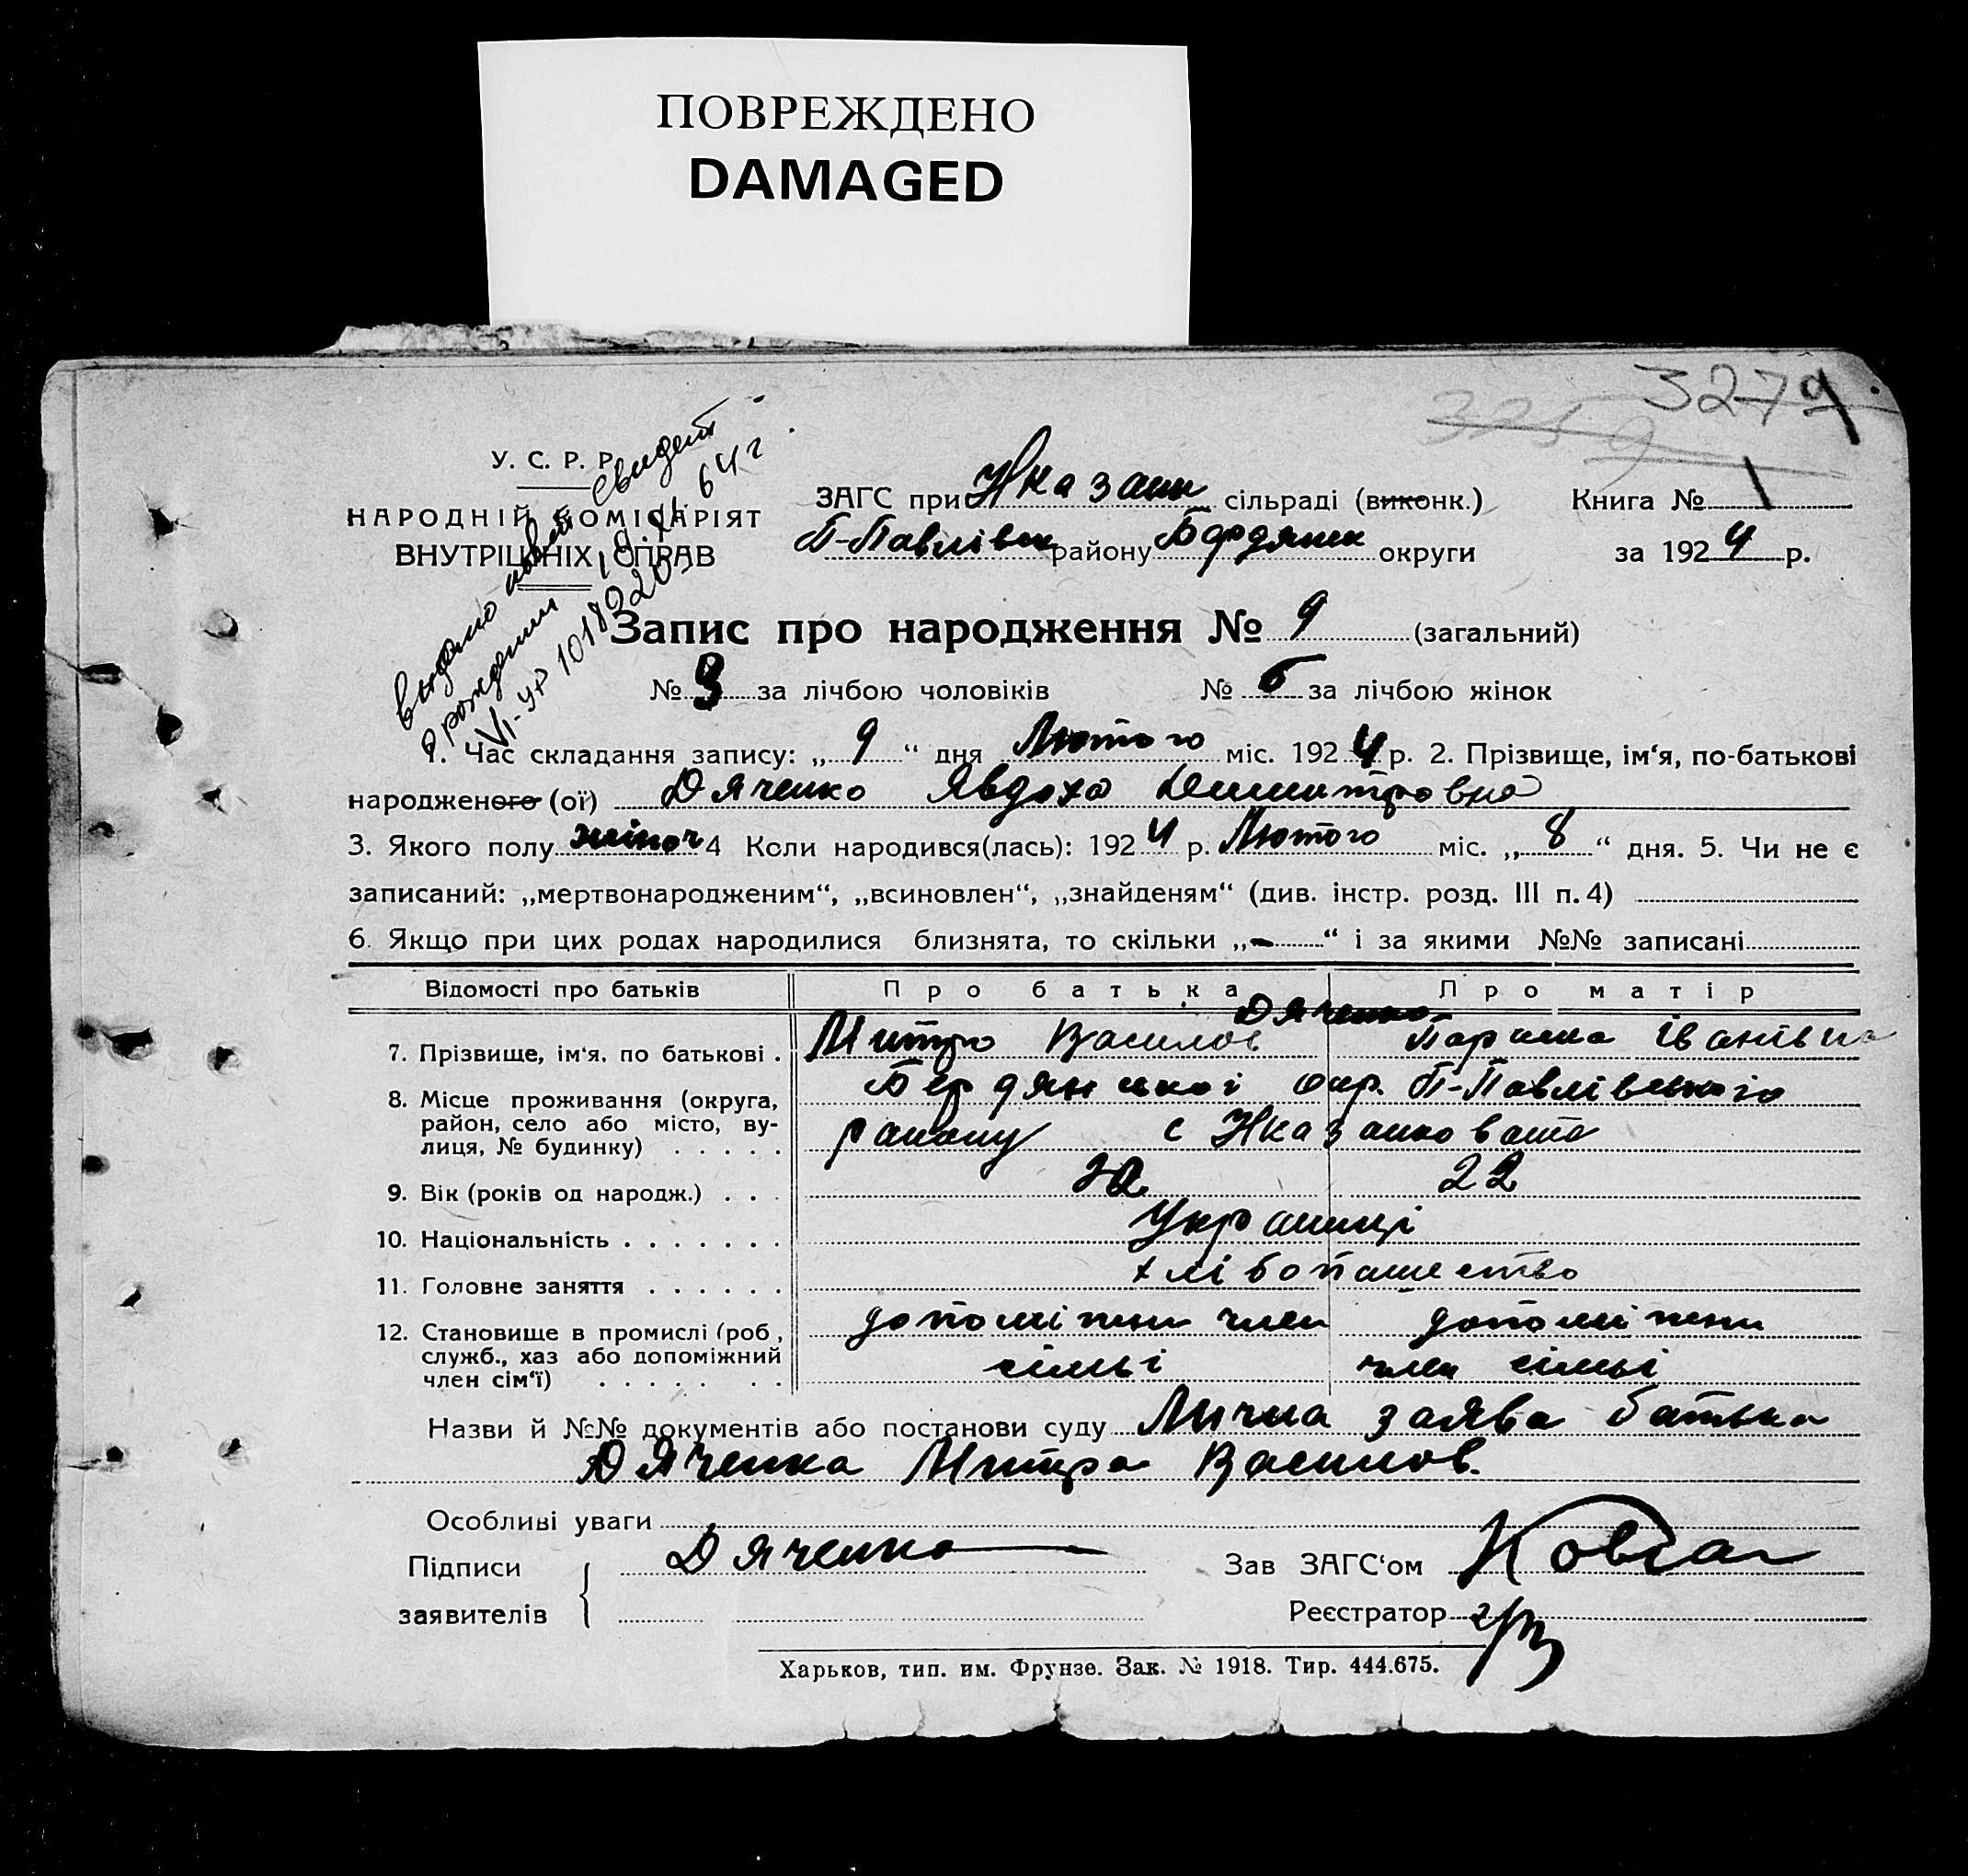 ПОВРЕЖДЕНО
DAMAGED
3279
3259
У. С. Р. Р.
НАРОДНІЙ КОМІСАРІЯТ
ВНУТРІШНІХ СПРАВ
выдано свидет
о рождении 64 г
VI-УР
ЗАГС при Нказань сільраді (виконк.) Книга № 1
П-Павлівск району Бердянск округи за 1924 р.
Запис про народження № 9 (загальний)
№ 3 за лічбою чоловіків № 6 за лічбою жінок
1. Час складання запису: „ 9 “ дня Лютого міс. 1924 р. 2. Прізвище, ім‘я, по-батькові
народженого (ої) Дяченко Явдоха Димитровна
3. Якого полу жіноч 4 Коли народився(лась): 1924 р. Лютого міс. „ 8 “ дня. 5. Чи не є
записаний: „мертвонародженим“, „всиновлен“, „знайденям“ (див. інстр. розд. III п. 4)
6. Якщо при цих родах народилися близнята, то скільки „ - “ і за якими №№ записані
Відомості про батьків Про батька Про матір
Дяченко
7. Прізвище, ім‘я, по батькові . Митро Василов Параска Іванівна
8. Місце проживання (округа, Бердянської окр. П-Павлівського
район, село або місто, ву-
лиця, № будинку) . . . . . району с Нказанковата
9. Вік (років од народж.) . . . 22
10. Національність . . . . . . . Українці
11. Головне заняття . . . . . . хлібопашество
12. Становище в промислі (роб., допоміжни член допоміжни
служб., хаз або допоміжний
член сім‘ї) . . . . . . . сімьі член сімьі
Назви й №№ документів або постанови суду Лична заява батька
Дяченка Митра Василов.
Особливі уваги
Підписи Дяченко Зав ЗАГС‘ом
заявителів Реєстратор
Харьков, тип. им. Фрунзе. Зак. № 1918. Тир. 444.675.